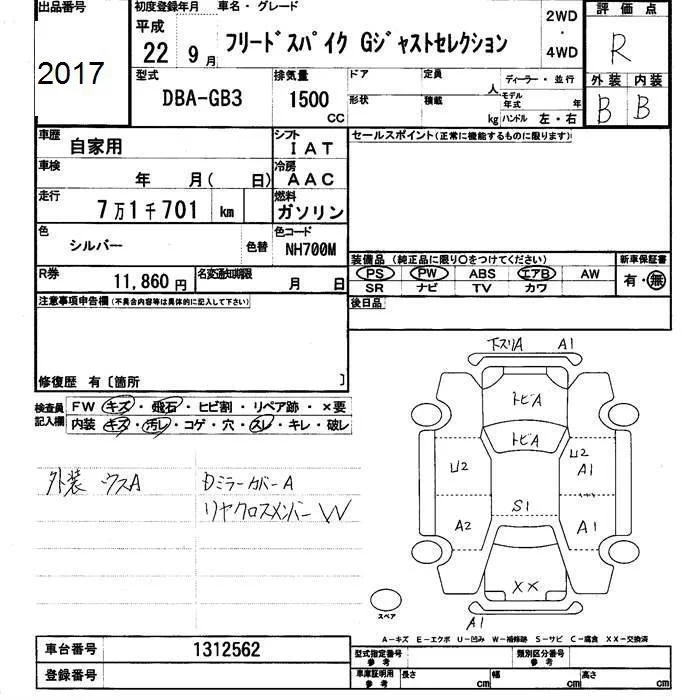 出品番号
2017
初度登録年月
平成
22 9 月
車名・グレード
フリードスパイク Gジャストセレクション
2WD
・
4WD
評価点
R
型式
DBA-GB3
排気量
1500
CC
ドア
定員
人
形状
積載
kg
ディーラー・並行
モデル
年式
年
ハンドル 左・右
外装 内装
B B
車歴
自家用
シフト
IAT
車検
年 月( 日)
冷房
AAC
走行
7万1千701 km
燃料
ガソリン
色
シルバー
色替
色コード
NH700M
R券
11,860 円
名変通知期限
月 日
セールスポイント(正常に機能するものに限ります)
装備品(純正品に限り○をつけてください)
PS PW ABS エアB AW
SR ナビ TV カワ
新車保証書
有・無
後日品
注意事項申告欄(不具合内容等は具体的に記入して下さい)
修復歴 有〔箇所 〕
検査員
記入欄
FW キズ・飛石・ヒビ割・リペア跡・×要
内装 キズ・汚レ・コゲ・穴・スレ・キレ・破レ
外装 ウスA
Dミラーカバー A
リヤクロスメンバー W
下スリA A1
トビA
トビA
U2
U2
A1
S1
A2
A1
XX
A1
スペア
A-キズ E-エクボ U-凹み W-補修跡 S-サビ C-腐食 XX-交換済
車台番号
1312562
登録番号
型式指定番号
参考
類別区分番号
参考
車庫証明用
参考
長さ
cm
幅
cm
高さ
cm